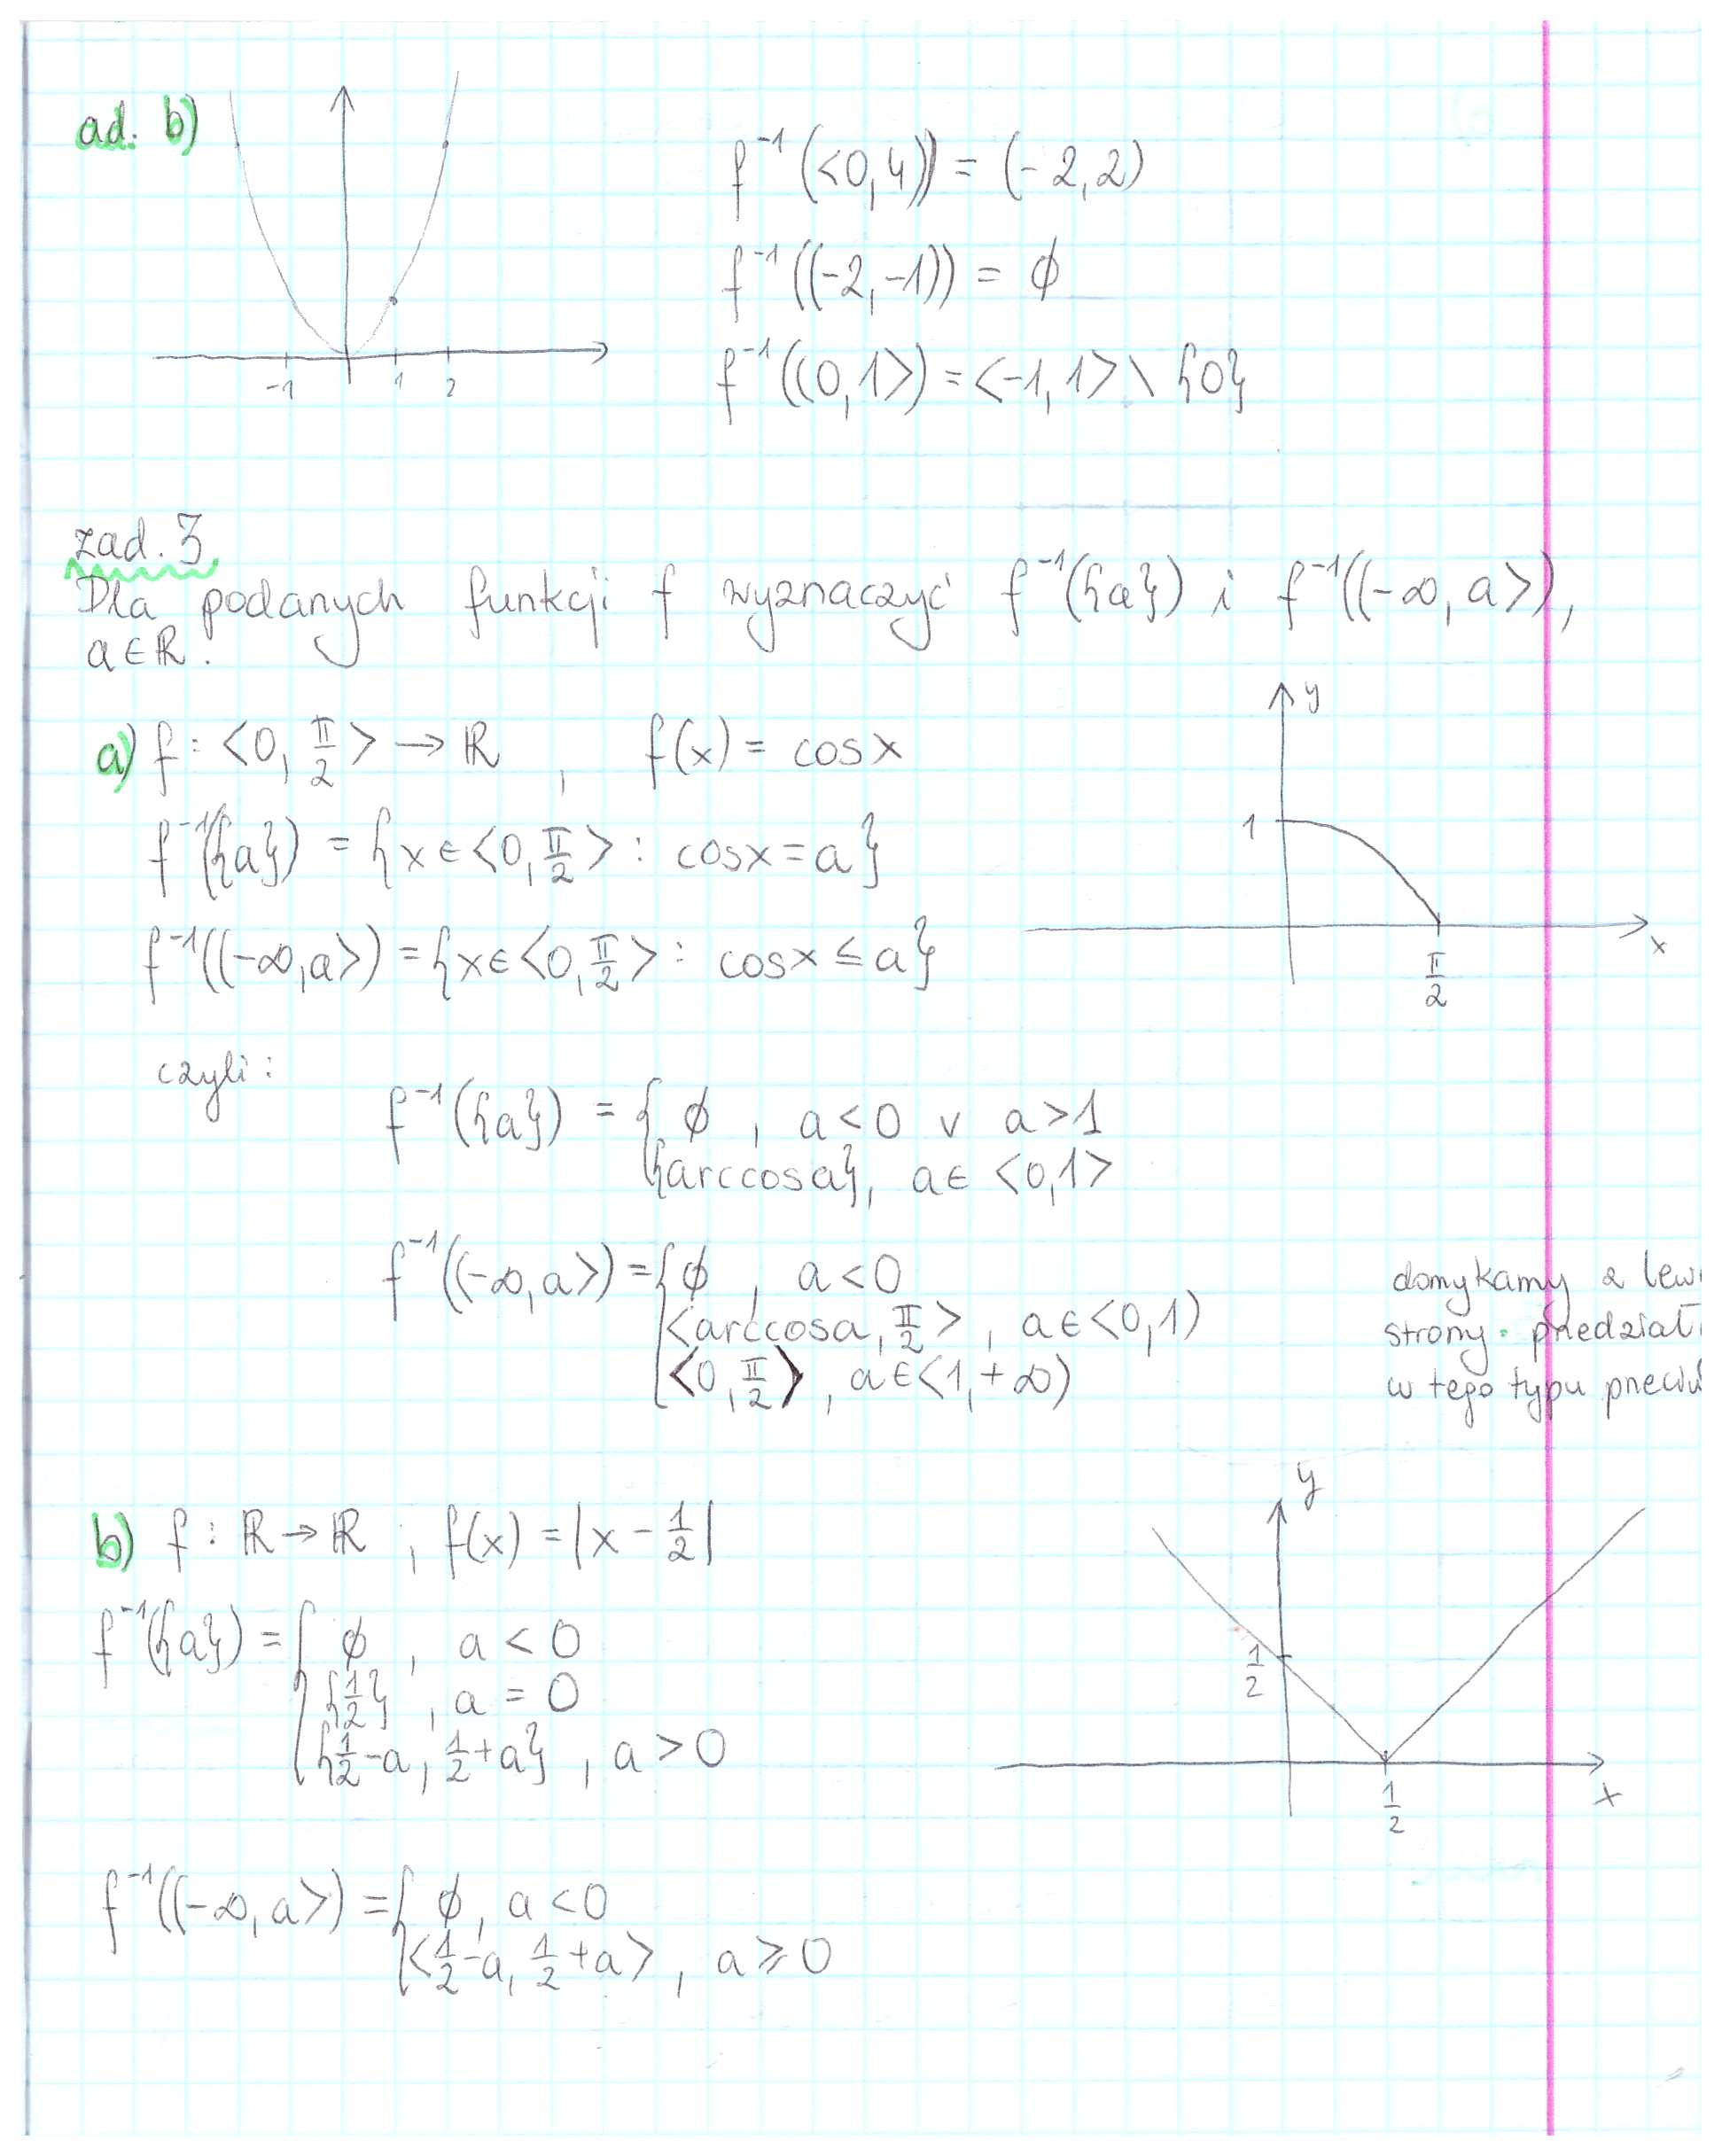 ad. b)
f⁻¹(<0,4)) = (-2,2)
f⁻¹((-2,-1)) = ∅
f⁻¹((0,1>) = <-1,1> \ {0}
-1 1 2
zad. 3
Dla podanych funkcji f wyznaczyć f⁻¹({a}) i f⁻¹((-∞,a>),
a∈ℝ.
y
a) f: <0, π/2> → ℝ , f(x) = cosx
1
f⁻¹({a}) = {x∈<0, π/2> : cosx = a}
f⁻¹((-∞,a>) = {x∈<0, π/2> : cosx ≤ a}
x
π/2
czyli:
f⁻¹({a}) = { ∅ , a<0 ∨ a>1
{arccosa}, a∈ <0,1>
f⁻¹((-∞,a>) = { ∅ , a<0
<arccosa, π/2> , a∈<0,1)
<0, π/2> , a∈<1,+∞)
domykamy z
strony
w tego typu
y
b) f: ℝ→ℝ , f(x) = |x - 1/2|
f⁻¹({a}) = { ∅ , a < 0
{1/2} , a = 0
{1/2-a, 1/2+a} , a > 0
1/2
1/2
x
f⁻¹((-∞,a>) = { ∅, a<0
<1/2-a, 1/2+a> , a ≥ 0